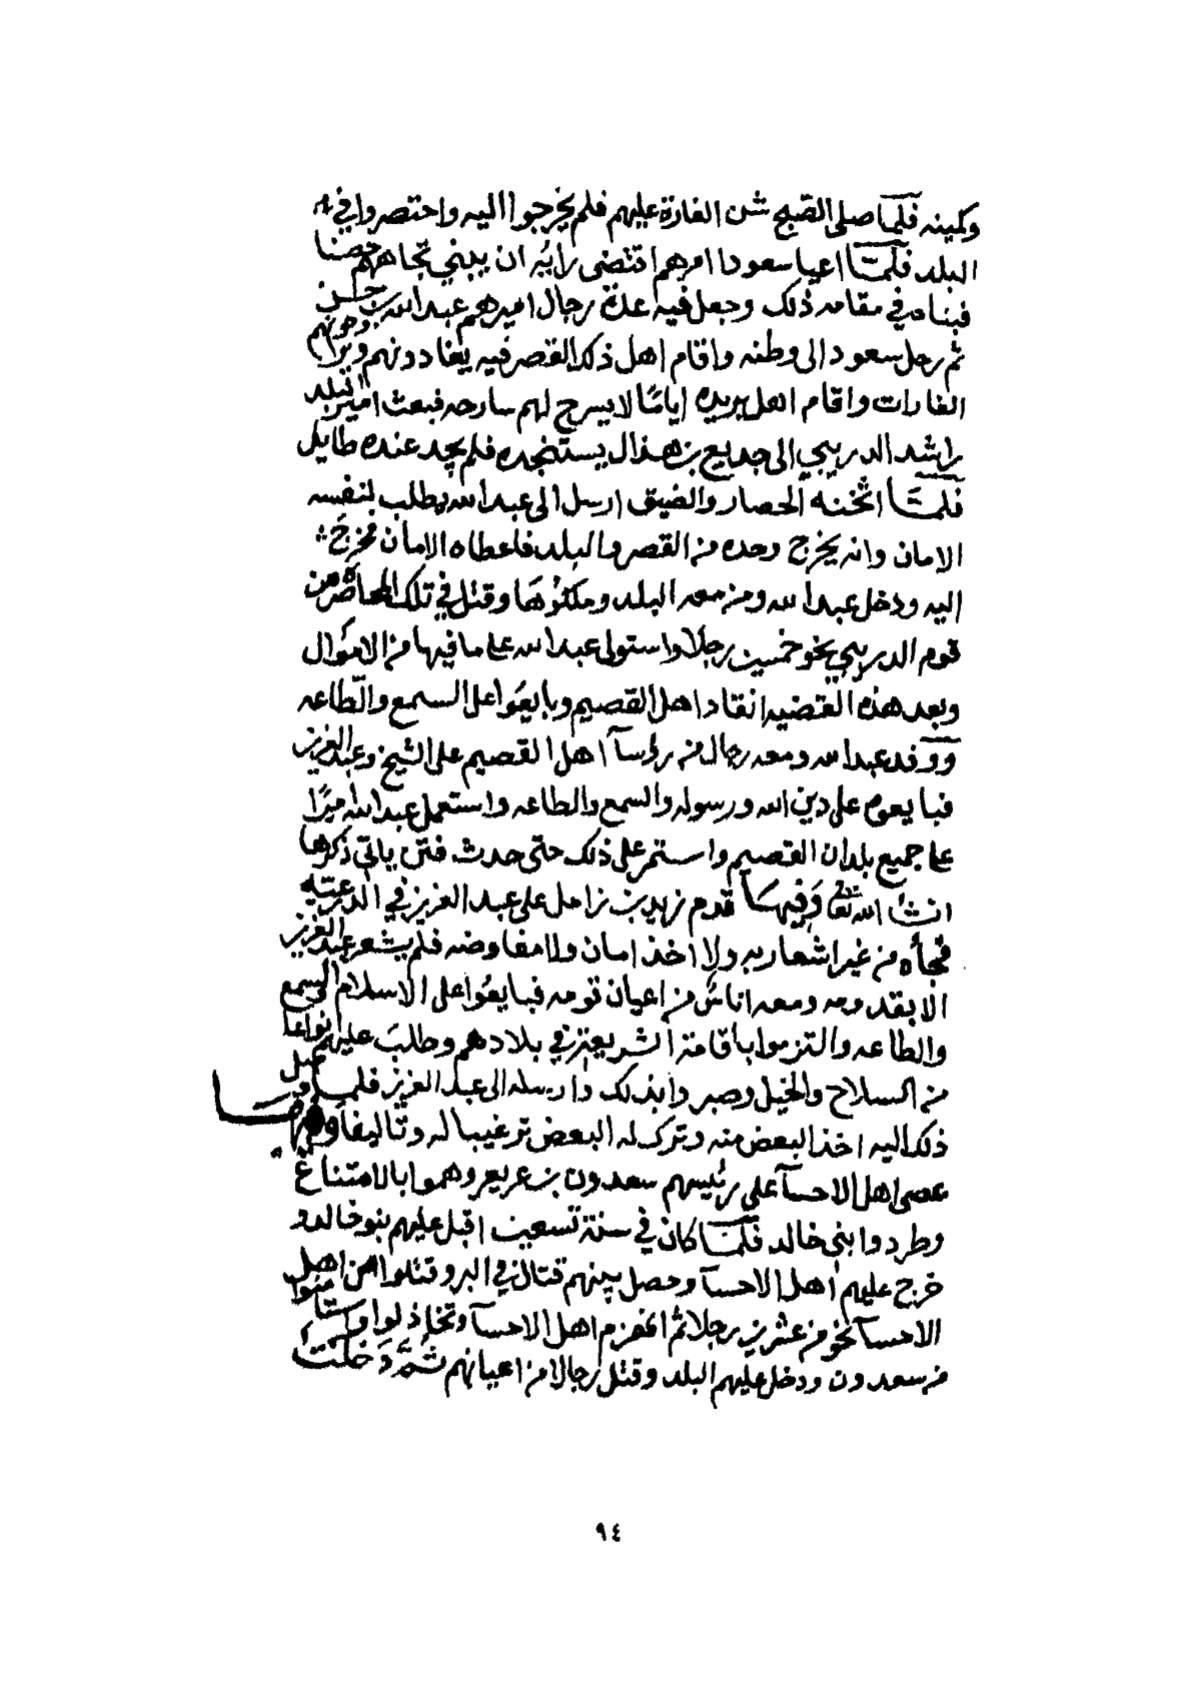 وكمينه فلما صلى الصبح شن الغارة عليهم فلم يخرجوا اليه واحتصروا في
البلد فلما اعيا سعودا امرهم اقتضى رأيه ان يبني تجاههم حصنا
فبناه في مقامه ذلك وجعل فيه عدة رجال اميرهم عبدالله بن حسن
ثم رحل سعود الى وطنه واقام اهل ذلك القصر فيه يغادونهم ويراوحونهم
الغارات واقام اهل بريده اياما لا يسرح لهم سارحه فبعث امير البلد
راشد الدريبي الى جديع بن هذال يستنجده فلم يجد عنده طايل
فلما اثخنه الحصار والضيق ارسل الى عبدالله يطلب لنفسه
الامان وانه يخرج وحده من القصر والبلد فاعطاه الامان فخرج
اليه ودخل عبدالله ومن معه البلد وملكوها وقتل في تلك المحاصره من
قوم الدريبي نحو خمسين رجلا واستولى عبدالله على ما فيها من الاموال
وبعد هذه القضيه انقاد اهل القصيم وبايعوا على السمع والطاعه
ووفد عبدالله ومعه رجال من رؤسآ اهل القصيم على الشيخ وعبدالعزيز
فبايعوه على دين الله ورسوله والسمع والطاعه واستعمل عبدالله اميرًا
على جميع بلدان القصيم واستمر على ذلك حتى حدث فتن ياتي ذكرها
انشأ الله تعالى وفيها قدم زيد بن زامل على عبد العزيز في الدرعيه
فجأه من غير اشعار به ولا اخذ امان ولا مفاوضه فلم يشعر عبدالعزيز
الا بقدومه ومعه اناسٌ من اعيان قومه فبايعوا على الاسلام والسمع
والطاعه والتزموا باقامة الشريعة في بلادهم وطلب عليهم انواعا
من السلاح والخيل وصبروا بذلك وارسله الى عبد العزيز فلما وصل
ذلك اليه اخذ البعض منه وترك له البعض ترغيبا له وتاليفا وفيها
عصى اهل الاحسآ على رئيسهم سعدون بن عريعر وهموا بالامتناع
وطردوا بني خالد فلما كان في سنة تسعين اقبل عليهم بنو خالد و
خرج عليهم اهل الاحسآ وحصل بينهم قتال في البر وقتلوا من اهل
الاحسآ نحو من عشرين رجلا ثم انهزم اهل الاحسآ وتخاذلوا واستامنوا
من سعدون ودخل عليهم البلد وقتل رجالا من اعيانهم ثم دخلت
٩٤